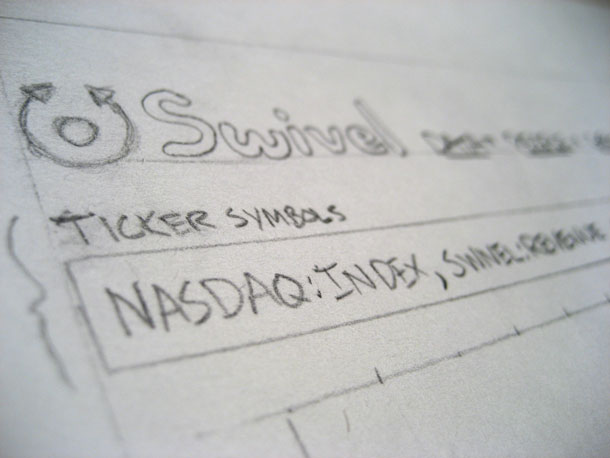 Swivel
TICKER SYMBOLS
NASDAQ:INDEX, SWIVEL:REVENUE